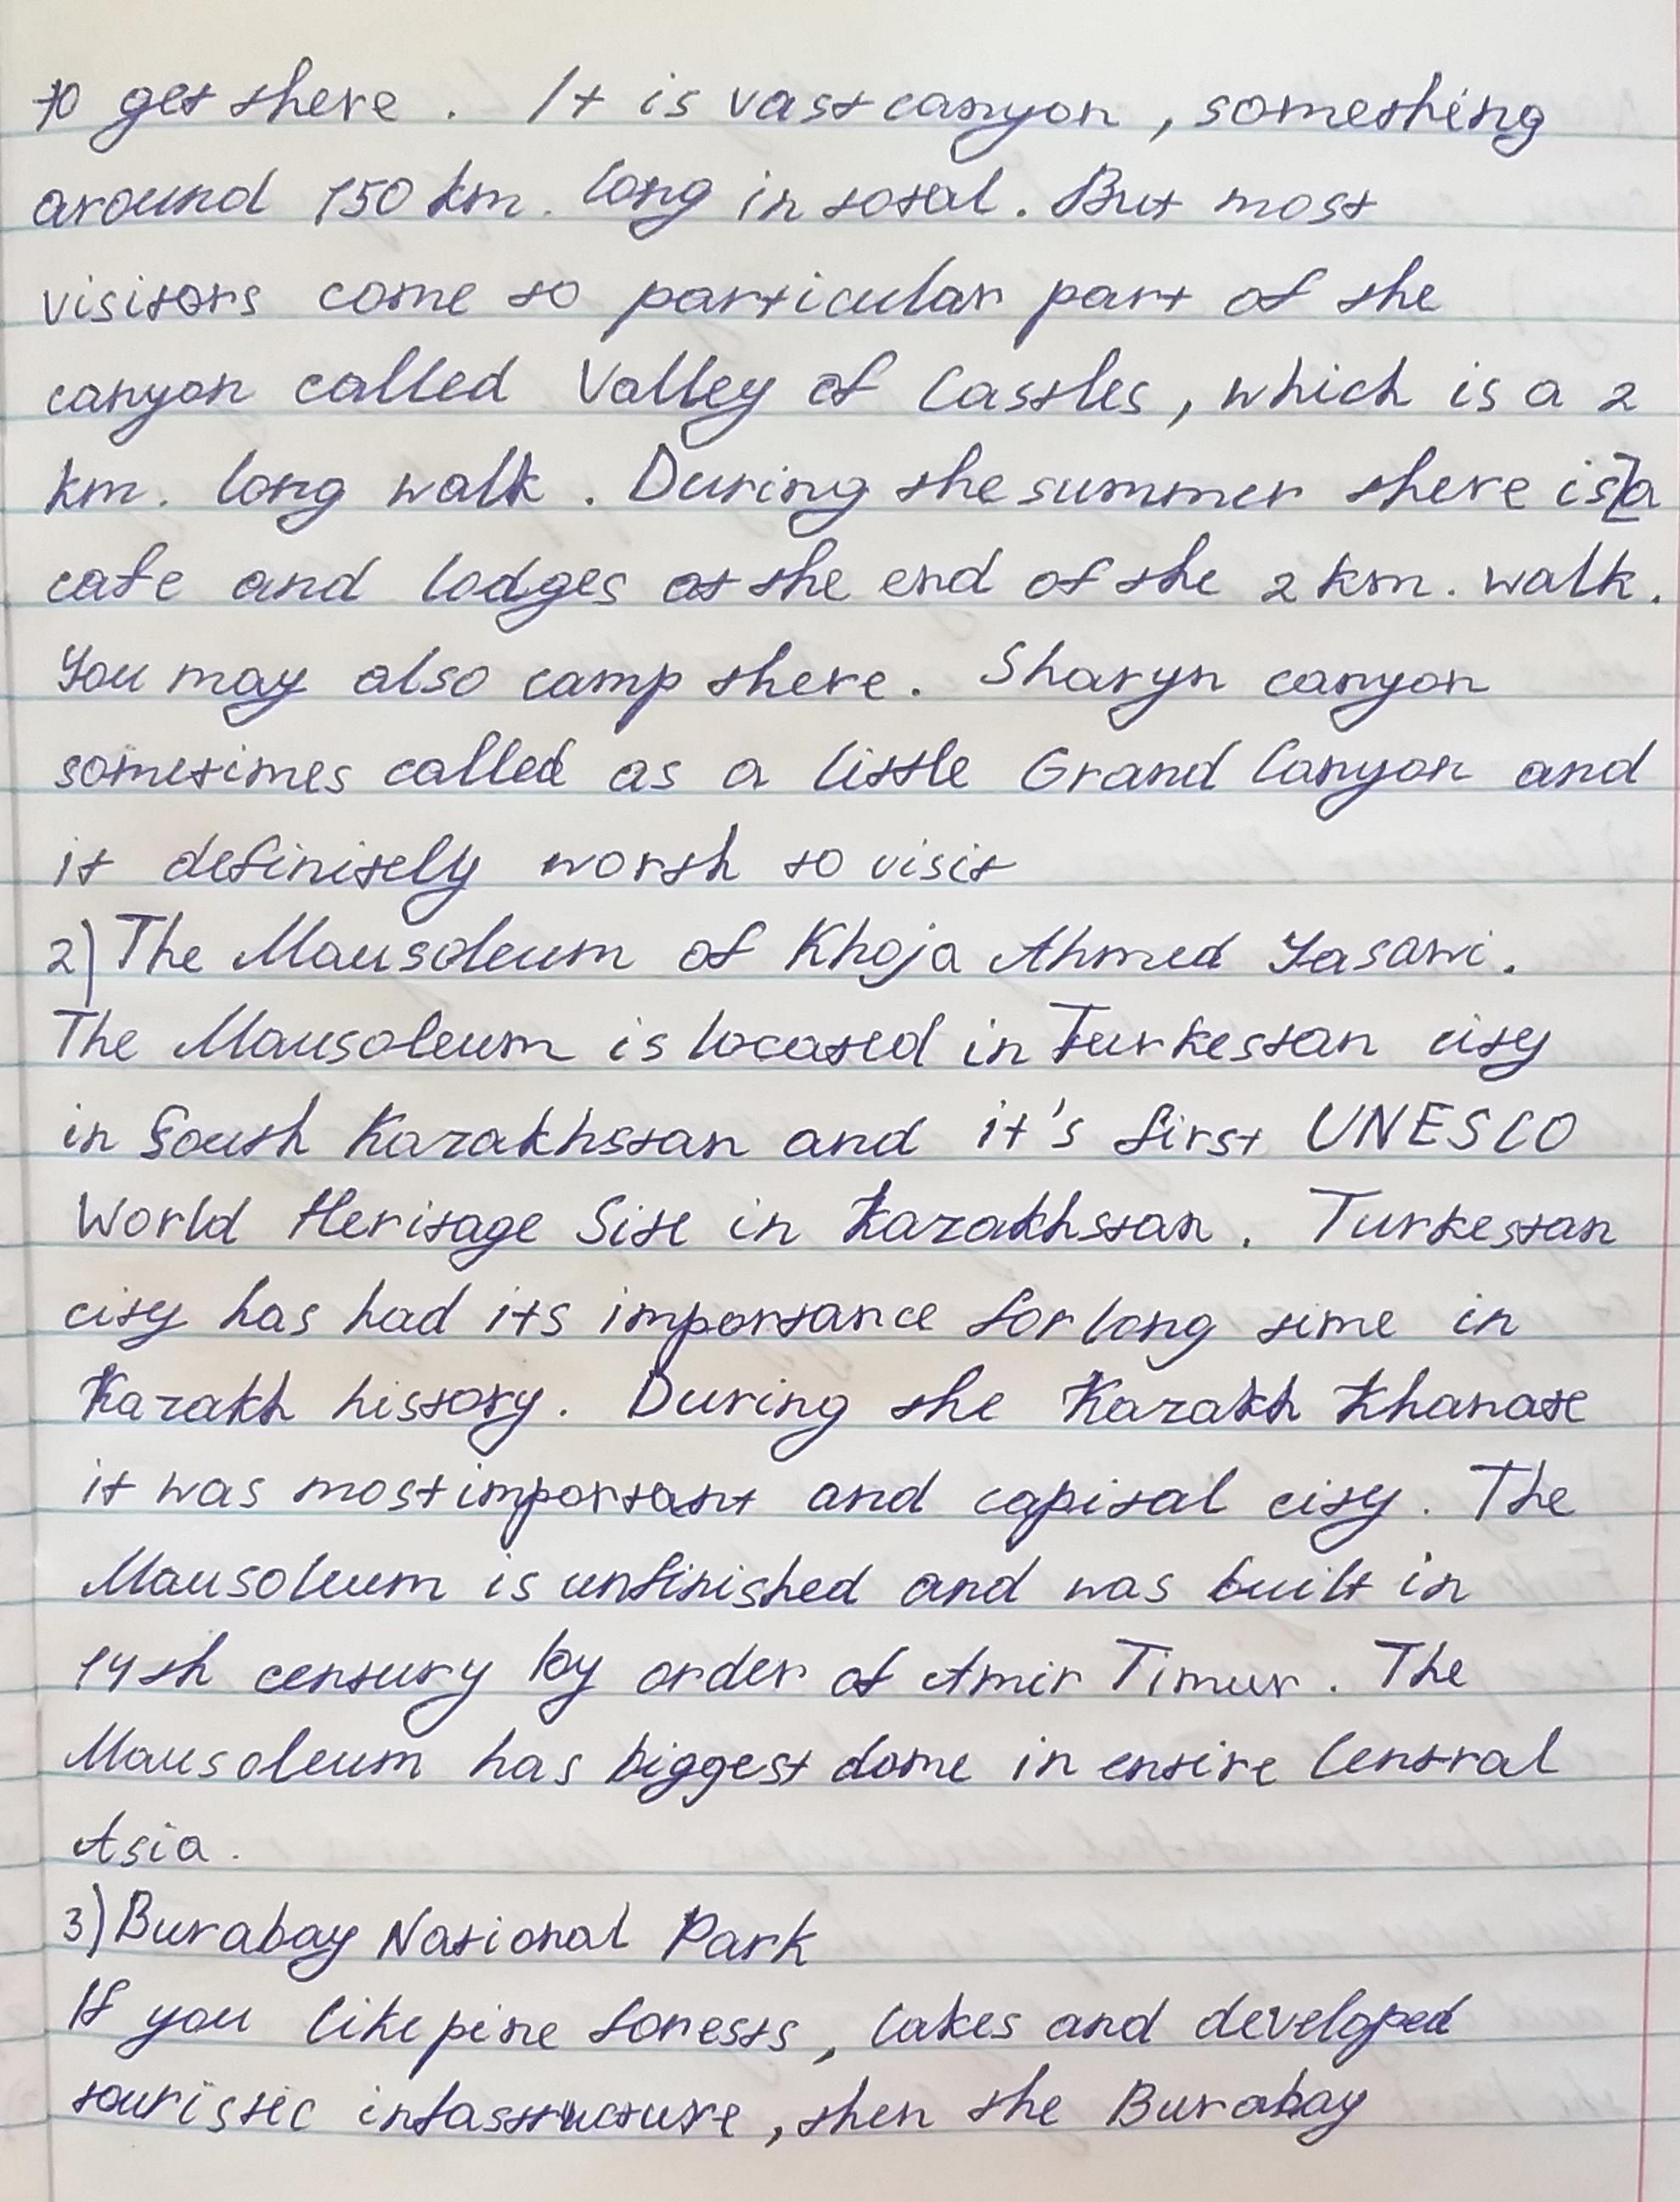 to get there. It is vast canyon, something
around 150 km. long in total. But most
visitors come to particular part of the
canyon called Valley of Castles, which is a 2
km. long walk. During the summer there is a
cafe and lodges at the end of the 2 km. walk.
You may also camp there. Sharyn canyon
sometimes called as a little Grand Canyon and
it definitely worth to visit
2) The Mausoleum of Khoja Ahmed Yasawi.
The Mausoleum is located in Turkestan city
in South Kazakhstan and it's first UNESCO
World Heritage Site in Kazakhstan. Turkestan
city has had its importance for long time in
Kazakh history. During the Kazakh Khanate
it was most important and capital city. The
Mausoleum is unfinished and was built in
14th century by order of Amir Timur. The
Mausoleum has biggest dome in entire Central
Asia.
3) Burabay National Park
If you like pine forests, lakes and developed
touristic infastructure, then the Burabay